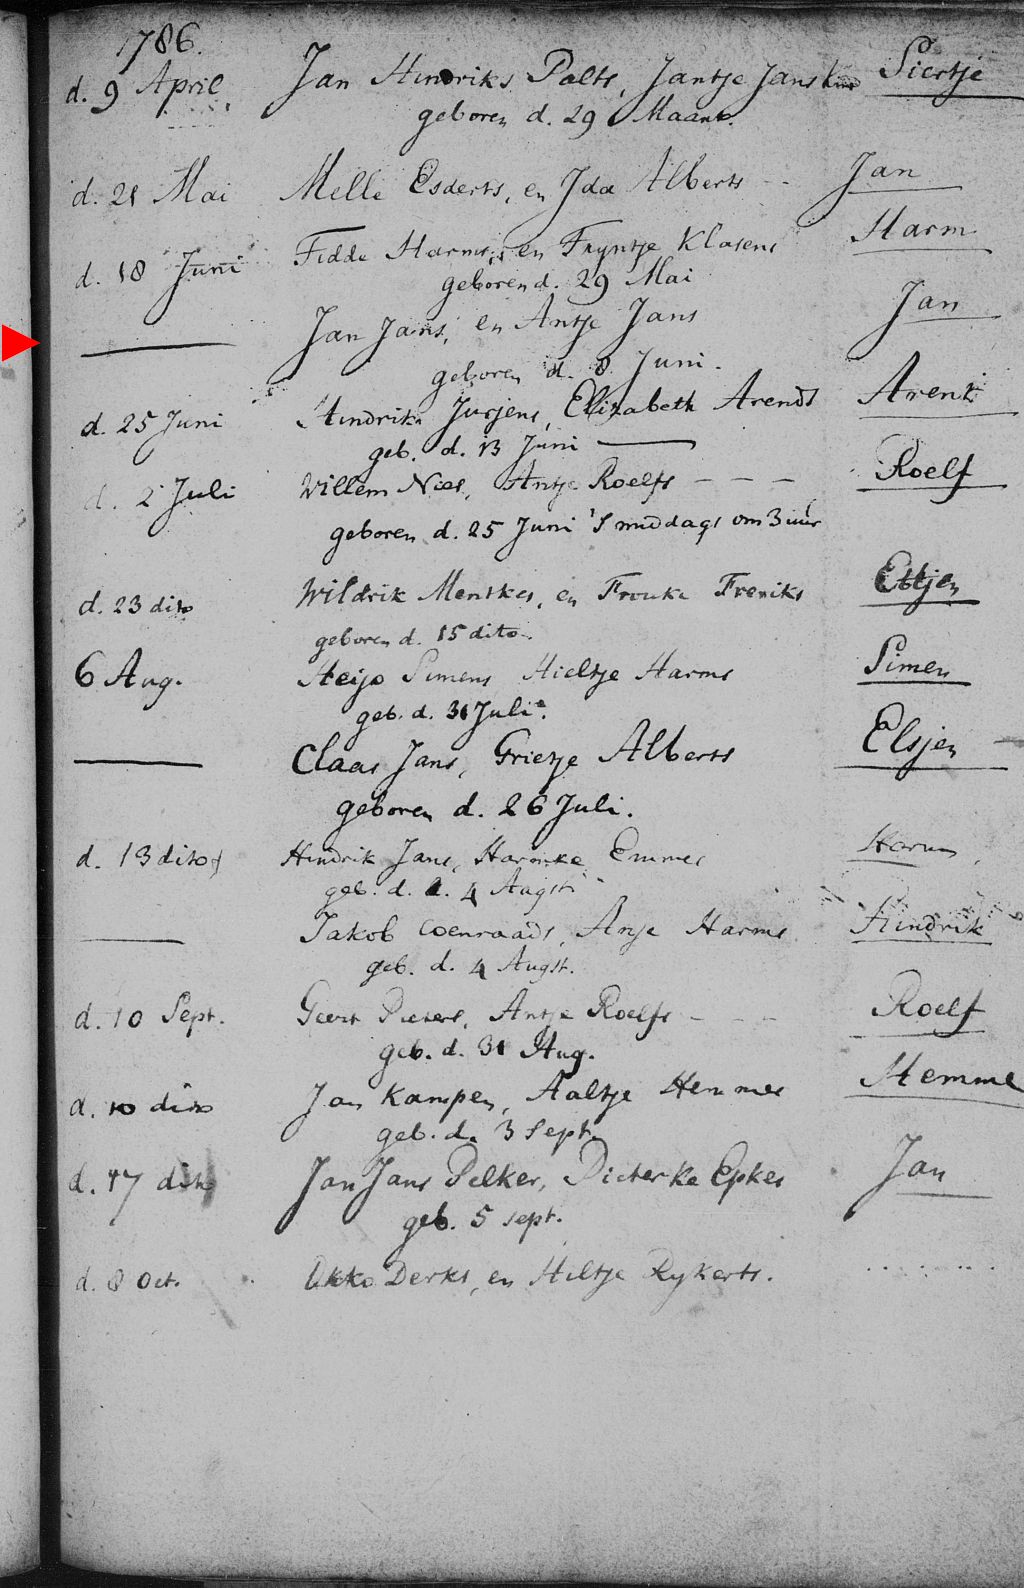 1786.
d. 9 April, Jan Hindriks Palts, Jantje Jans kind Siertje
geboren d. 29 Maart.
d. 21 Mai Melle Esderts, en Ida Alberts -- Jan
d. 18 Juni Fidde Harms, en Fryntje Klasens Harm
geboren d. 29 Mai
Jan Jans, en Antje Jans Jan
geboren d. 8 Juni.
d. 25 Juni Hindrik Jurjens, Elizabeth Arends Arent
geb. d. 13 Juni
d. 2 Juli Willem Nies, Antje Roelfs - - - Roelf
geboren d. 25 Juni 's middags om 3 uur
d. 23 dito Wildrik Menskes, en Frouke Freriks
geboren d. 15 dito.
6 Aug. Heijo Simens Hieltje Harms Simen
geb. d. 31 Juli.
Claas Jans, Grietje Alberts Elsjen
geboren d. 26 Juli.
d. 13 dito Hindrik Jans, Harmke Emmes Harm
geb. d. 4 Augst
Jakob Coenraads, Antje Harms Hindrik
geb. d. 4 Augst.
d. 10 Sept. Geert Pieters, Antje Roelfs - - - Roelf
geb. d. 31 Aug.
d. 10 dito Jan Kampen, Aaltje Hemmes Hemme
geb. d. 3 Sept.
d. 17 dito Jan Jans Pelker, Pieterke Epkes Jan
geb. 5 sept.
d. 8 Oct. Okko Derks, en Hiltje Rykerts.